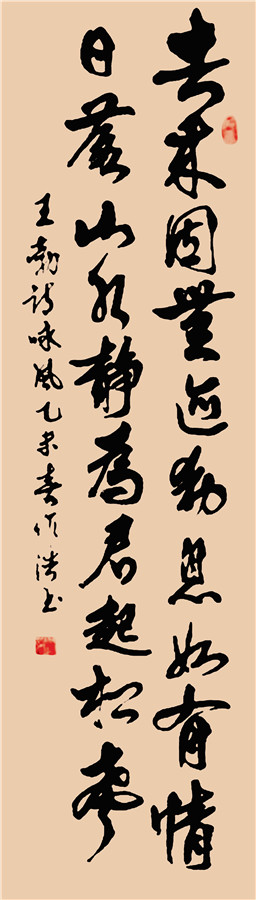 去来固無迹動息如有情
日落山水静為君起松聲
王勃诗咏風乙未春作书